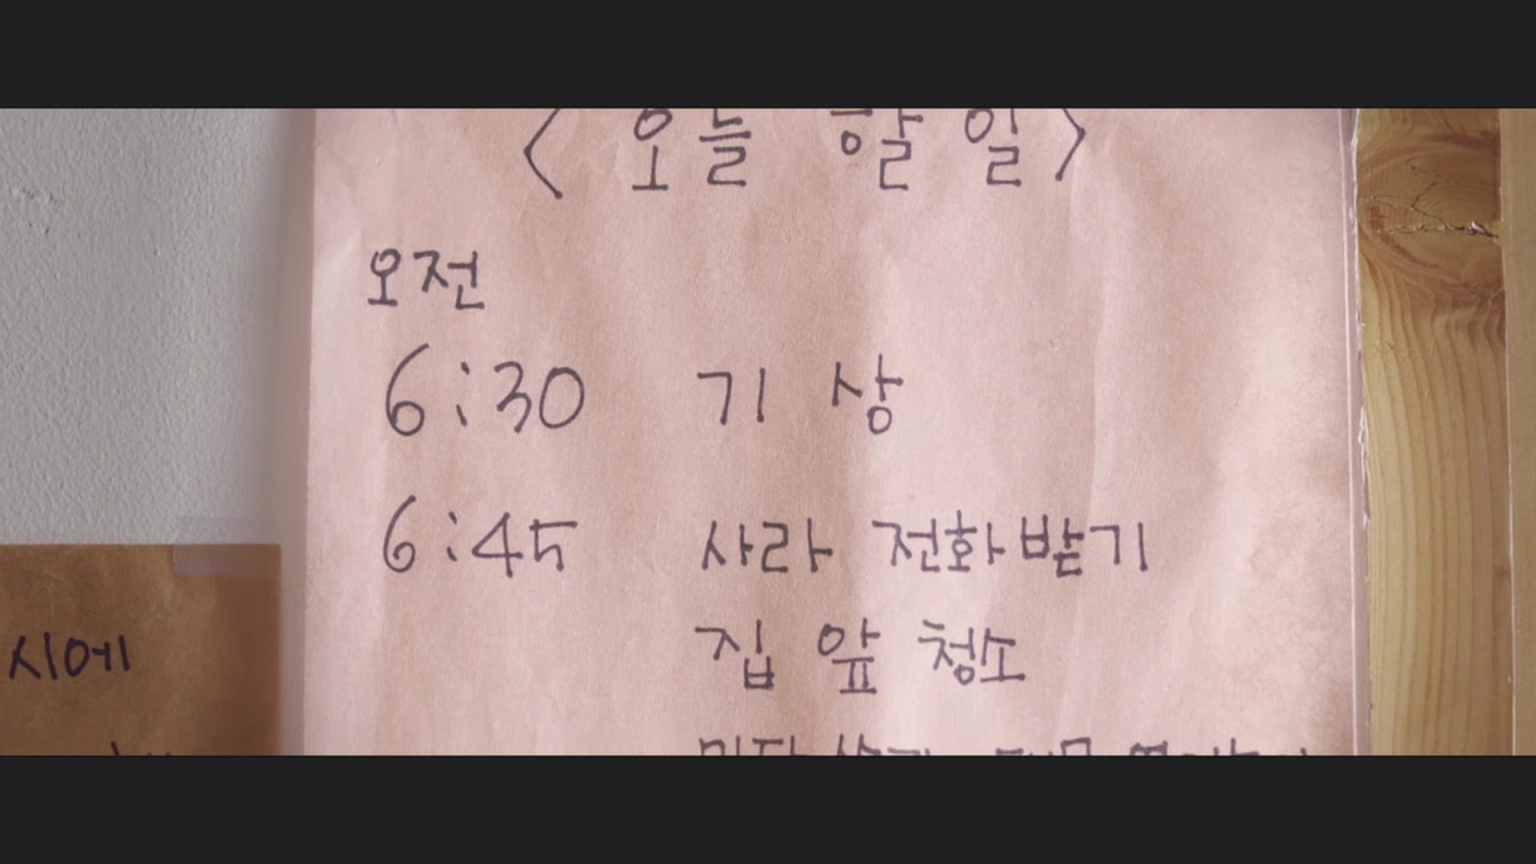 <오늘 할 일>
오전
6:30 기상
6:45 사라 전화받기
집 앞 청소
시에